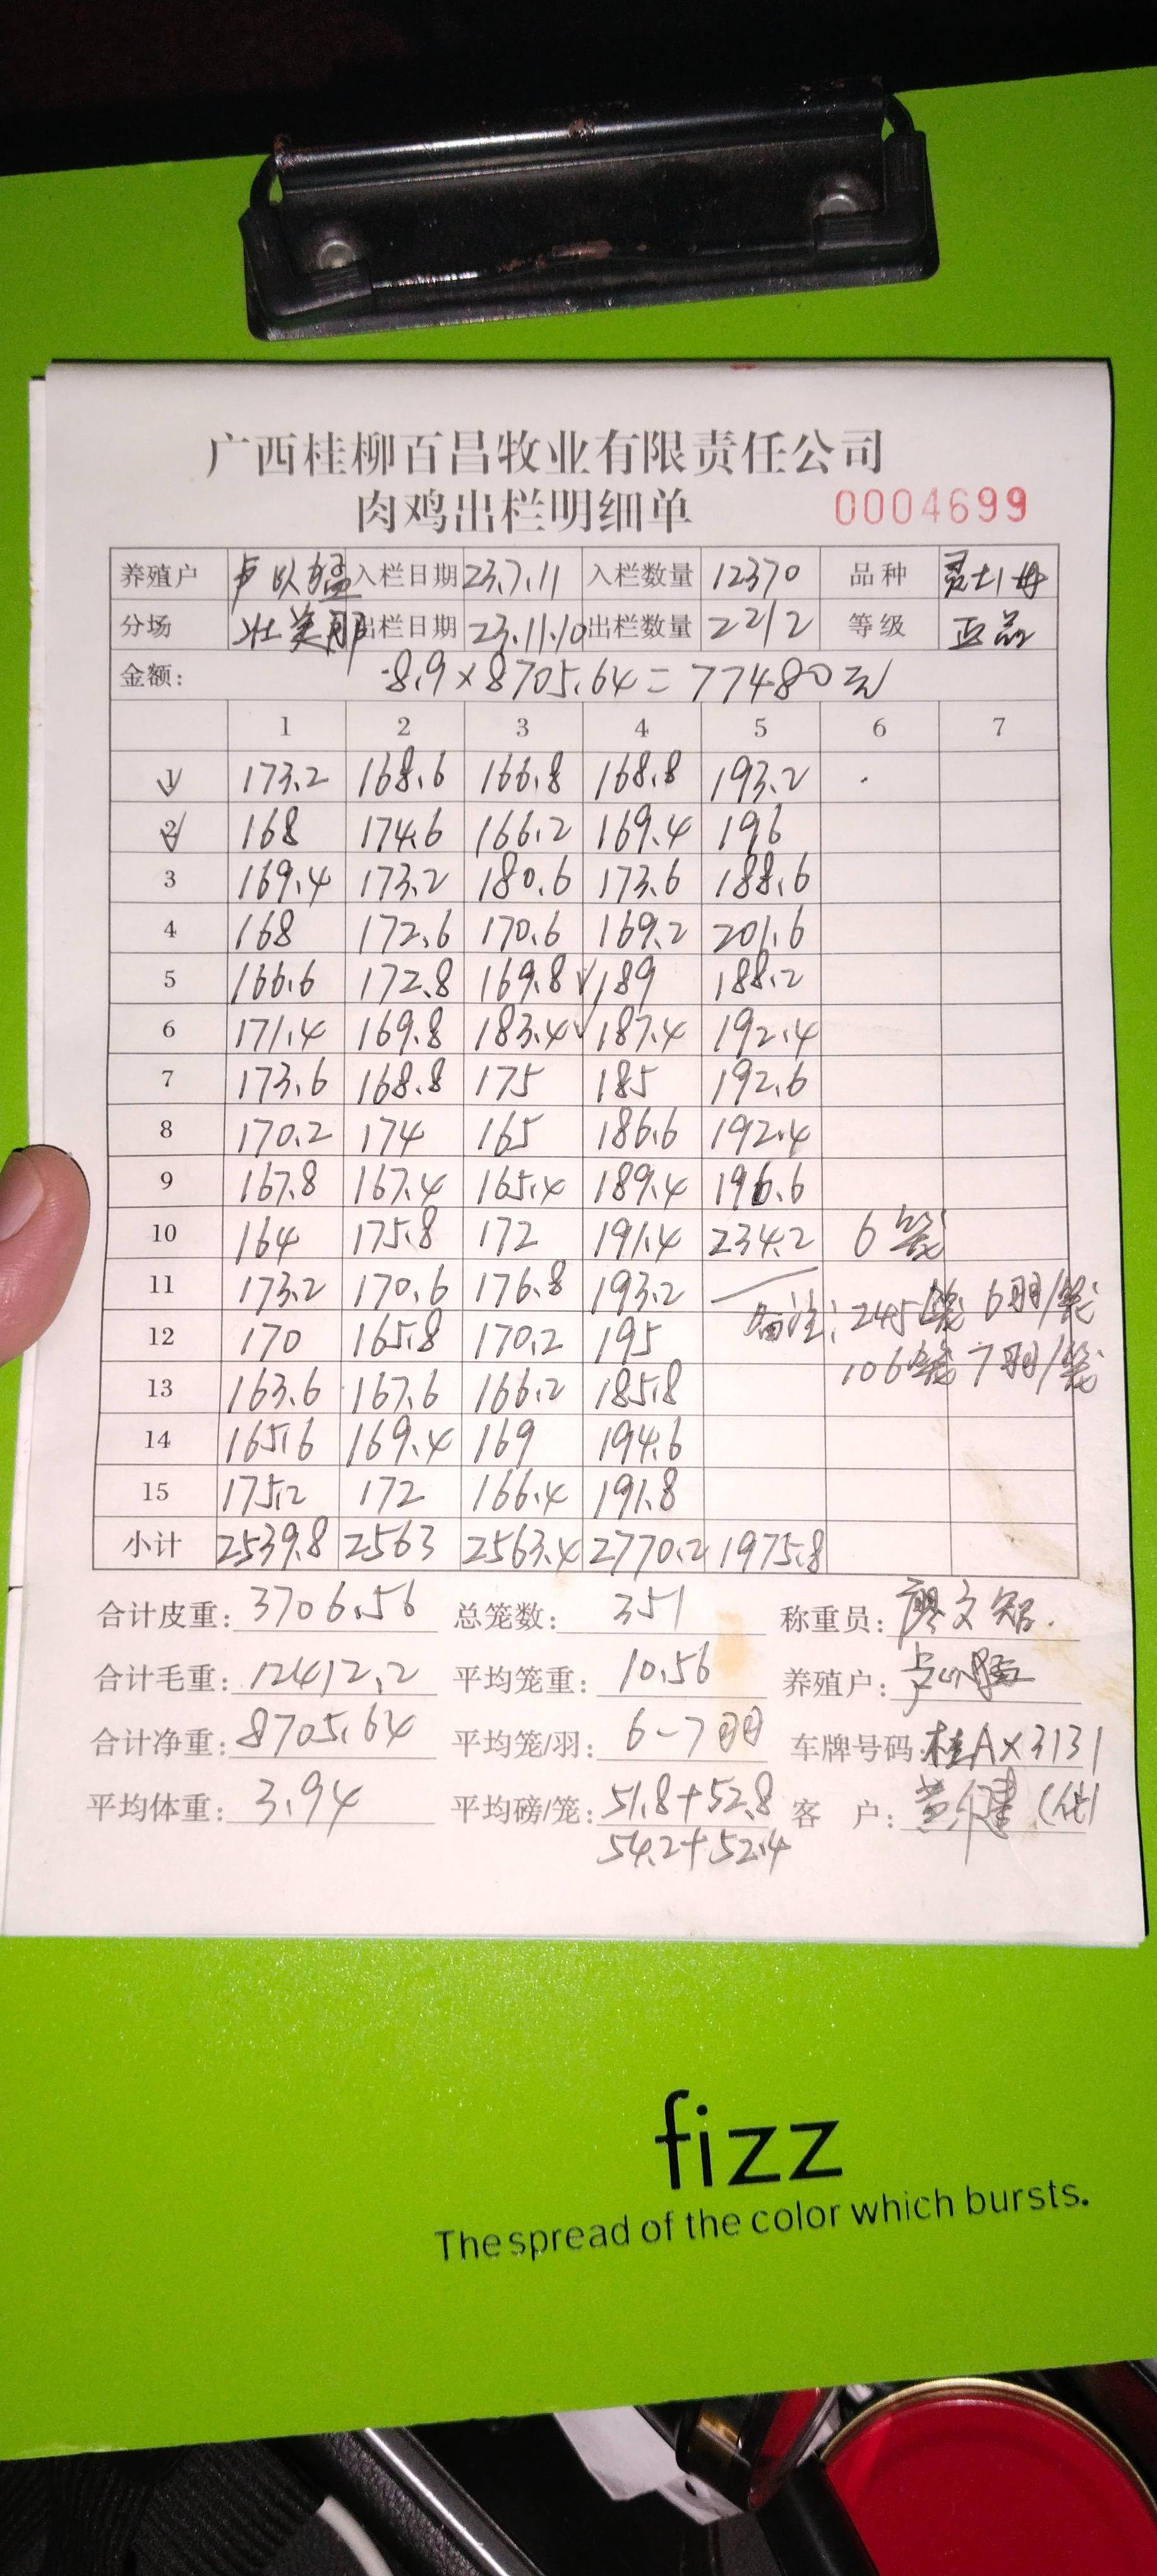 广西桂柳百昌牧业有限责任公司
肉鸡出栏明细单 0004699
养殖户 卢 猛 入栏日期 23.7.11 入栏数量 12370 品种
分场 壮美那 出栏日期 23.11.10 出栏数量 2212 等级 正品
金额: 8.9×8705.64=77480元
1 2 3 4 5 6 7
1 173.2 168.6 166.8 168.8 193.2
2 168 174.6 166.2 169.4 196
3 169.4 173.2 180.6 173.6 188.6
4 168 172.6 170.6 169.2 201.6
5 166.6 172.8 169.8 189 188.2
6 171.4 169.8 183.4 187.4 192.4
7 173.6 168.8 175 185 192.6
8 170.2 174 165 186.6 192.4
9 167.8 167.4 165.4 189.4 196.6
10 164 175.8 172 191.4 234.2 6笼
11 173.2 170.6 176.8 193.2 备注: 245笼 6羽/笼
12 170 165.8 170.2 195 106笼 7羽/笼
13 163.6 167.6 166.2 185.8
14 165.6 169.4 169 194.6
15 175.2 172 166.4 191.8
小计 2539.8 2563 2563.4 2770.2 1975.8
合计皮重: 3706.56 总笼数: 351 称重员: 廖文智
合计毛重: 12412.2 平均笼重: 10.56 养殖户: 卢
合计净重: 8705.64 平均笼/羽: 6-7羽 车牌号码: 桂AX3131
平均体重: 3.94 平均磅/笼: 51.8+52.8 客 户: 黄 健
54.2+52.4
fizz
The spread of the color which bursts.